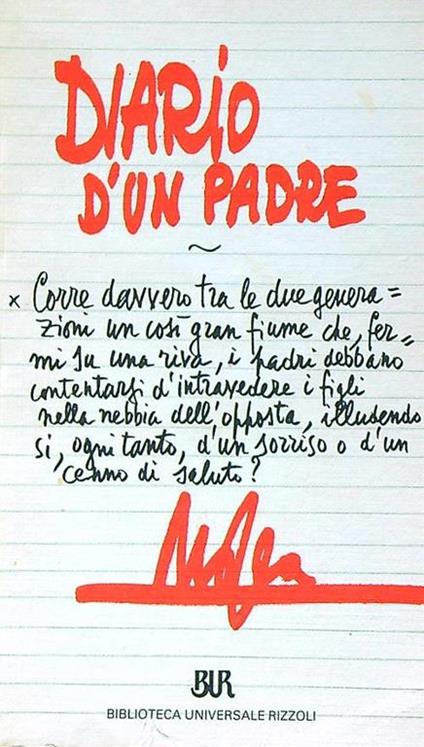 DIARIO
D'UN PADRE
~
× Corre davvero tra le due genera=
zioni un così gran fiume che, fer=
mi su una riva, i padri debbano
contentarsi d'intravedere i figli
nella nebbia dell'opposta, illudendo
si, ogni tanto, d'un sorriso o d'un
cenno di saluto?
BUR
BIBLIOTECA UNIVERSALE RIZZOLI